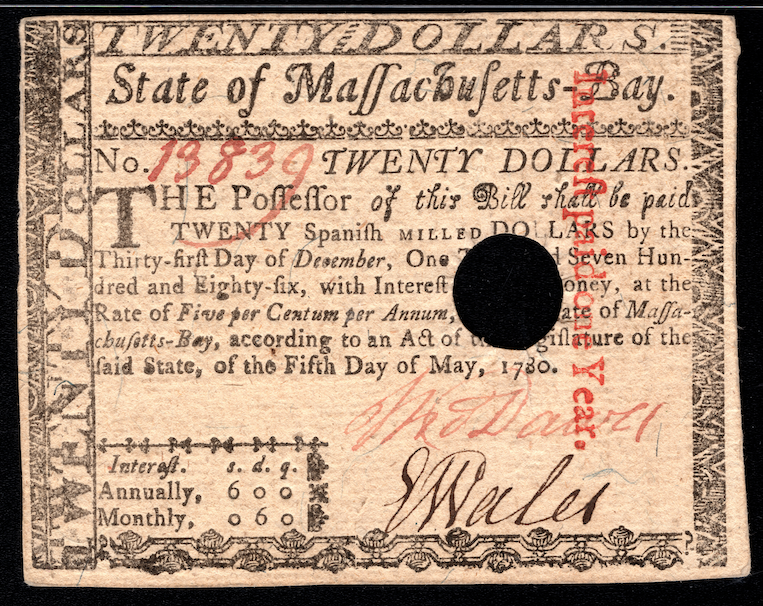 TWENTY DOLLARS.
TWENTY DOLLARS
State of Maſſachuſetts-Bay.
No. 13839 TWENTY DOLLARS.
THE Poſſeſſor of this Bill ſhall be paid
TWENTY Spaniſh MILLED DOLLARS by the
Thirty-firſt Day of December, One Seven Hun-
dred and Eighty-ſix, with Intereſt oney, at the
Rate of Five per Centum per Annum, ate of Maſſa-
chuſetts-Bay, according to an Act of giſlature of the
ſaid State, of the Fifth Day of May, 1780.
Intereſt paid one Year.
Dawes
Wales
Intereſt. s. d. q.
Annually, 6 0 0
Monthly, 0 6 0